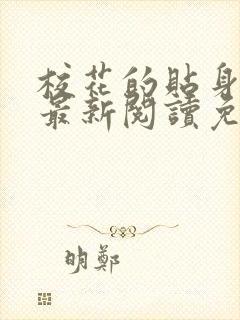 校花的貼身
最新閱讀免
明鄭